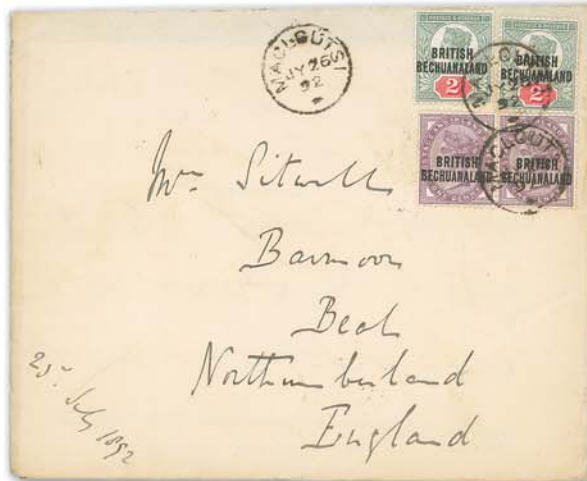 MACLOUTSI
JY 25
92
BRITISH
BECHUANALAND
2
BRITISH
BECHUANALAND
2
BRITISH
BECHUANALAND
BRITISH
BECHUANALAND
Mrs Sitwell
Barmoor
Beal
Northumberland
England
25th July 1892